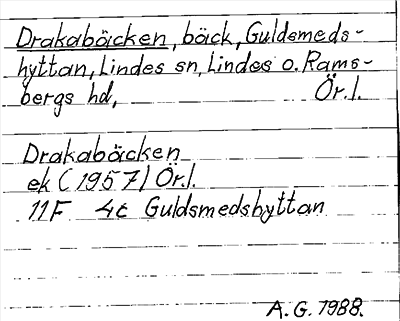 Drakabäcken, bäck, Guldsmeds-
hyttan, Lindes sn, Lindes o. Rams-
bergs hd, Ör.l.
Drakabäcken
ek (1957) Ör.l.
11F 4c Guldsmedshyttan
A.G. 1988.